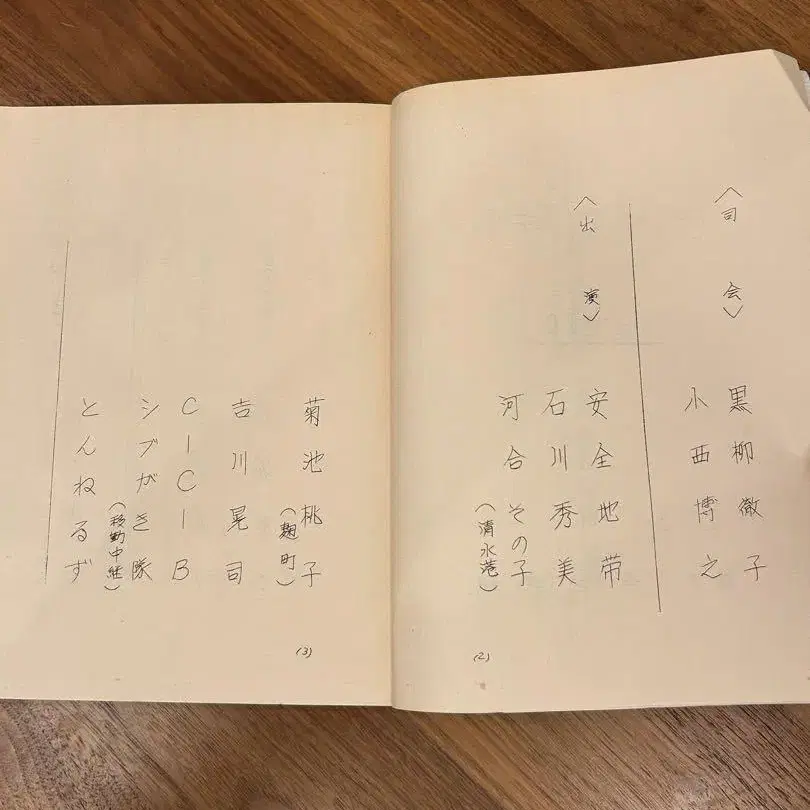 〈司会〉
黒柳徹子
小西博之
〈出演〉
安全地帯
石川秀美
河合その子
(清水港)
(2)
菊池桃子
(麹町)
吉川晃司
C-C-B
シブがき隊
(移動中継)
とんねるず
(3)